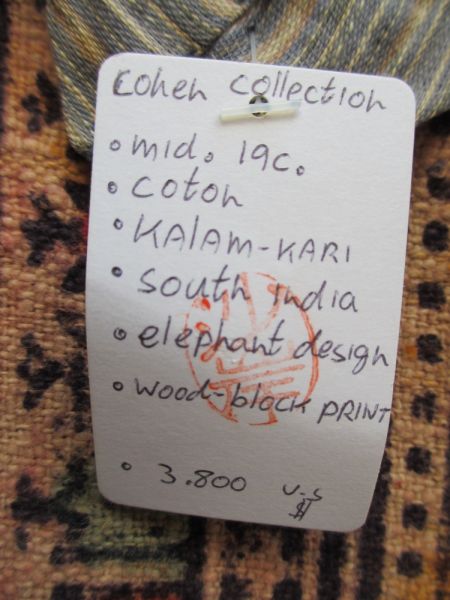 Cohen collection
• mid. 19c.
• coton
• KALAM-KARI
• south india
• elephant design
• wood-block PRINT
• 3.800 U.S $